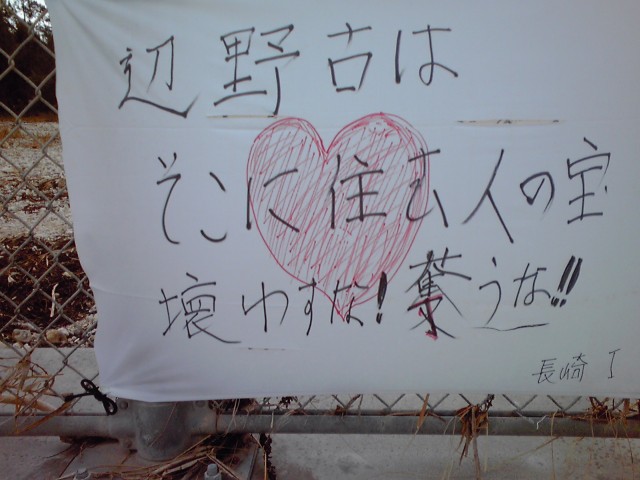 辺野古は
そこに住む人の宝
壊わすな! 奪うな!!
長崎 I